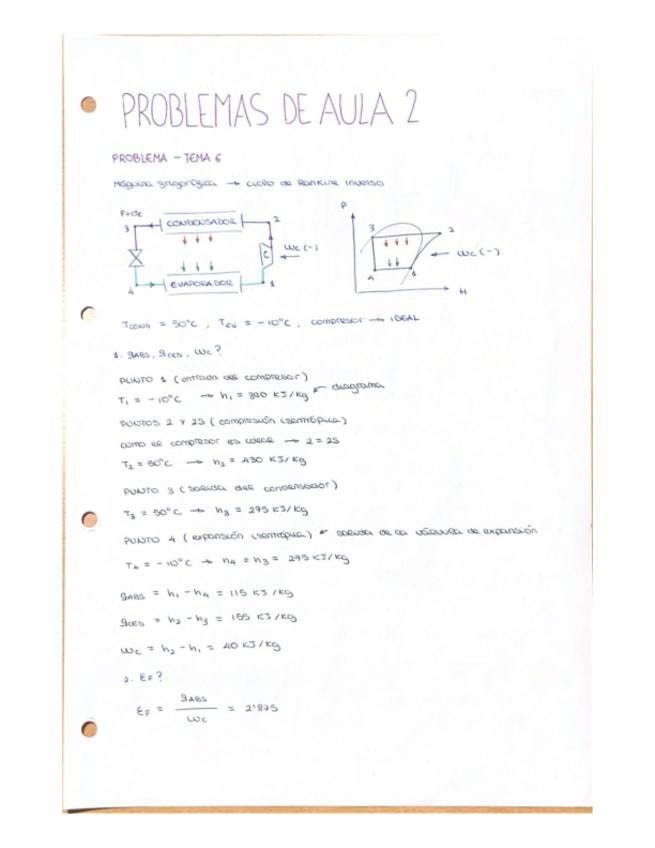 PROBLEMAS DE AULA 2
PROBLEMA - TEMA 6
Máquina frigorífica → CICLO DE RANKINE INVERSO
P=cte
3
CONDENSADOR
2
C
Wc (-)
EVAPORADOR
4
1
P
3
2
Wc (-)
4
1
H
Tcond = 50°C, Tev = -10°C, compresor → IDEAL
1. qABS, qCED, Wc?
PUNTO 1 (entrada del compresor)
T1 = -10°C → h1 = 390 KJ/Kg ← diagrama
PUNTOS 2 Y 2S (compresión isentrópica)
como el compresor es ideal → 2 = 2S
T2 = 50°C → h2 = 430 KJ/Kg
PUNTO 3 (salida del condensador)
T3 = 50°C → h3 = 275 KJ/Kg
PUNTO 4 (expansión isentrópica) ← salida de la válvula de expansión
T4 = -10°C → h4 = h3 = 275 KJ/Kg
qABS = h1 - h4 = 115 KJ/Kg
qCED = h2 - h3 = 155 KJ/Kg
Wc = h2 - h1 = 40 KJ/Kg
2. EF?
EF = qABS / Wc = 2'875